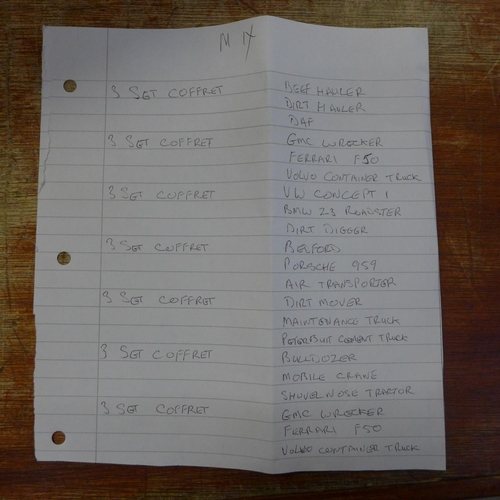 M IX
3 SET COFFRET DEEF HAULER
DIRT HAULER
DAF
3 SET COFFRET GMC WRECKER
FERRARI F50
VOLVO CONTAINER TRUCK
3 SET COFFRET VW CONCEPT 1
BMW Z3 ROADSTER
DIRT DIGGER
3 SET COFFRET BEDFORD
PORSCHE 959
AIR TRANSPORTER
3 SET COFFRET DIRT MOVER
MAINTENANCE TRUCK
PETERBILT CEMENT TRUCK
3 SET COFFRET BULLDOZER
MOBILE CRANE
SHOVEL NOSE TRACTOR
3 SET COFFRET GMC WRECKER
FERRARI F50
VOLVO CONTAINER TRUCK